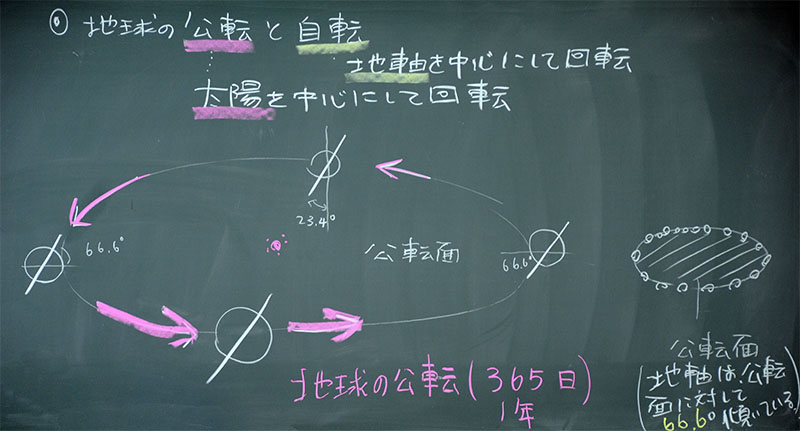 ◎ 地球の公転と自転
地軸を中心にして回転
太陽を中心にして回転
23.4°
66.6°
公転面
66.6°
地球の公転(365日)
1年
公転面
(地軸は公転
面に対して
66.6°傾いている)